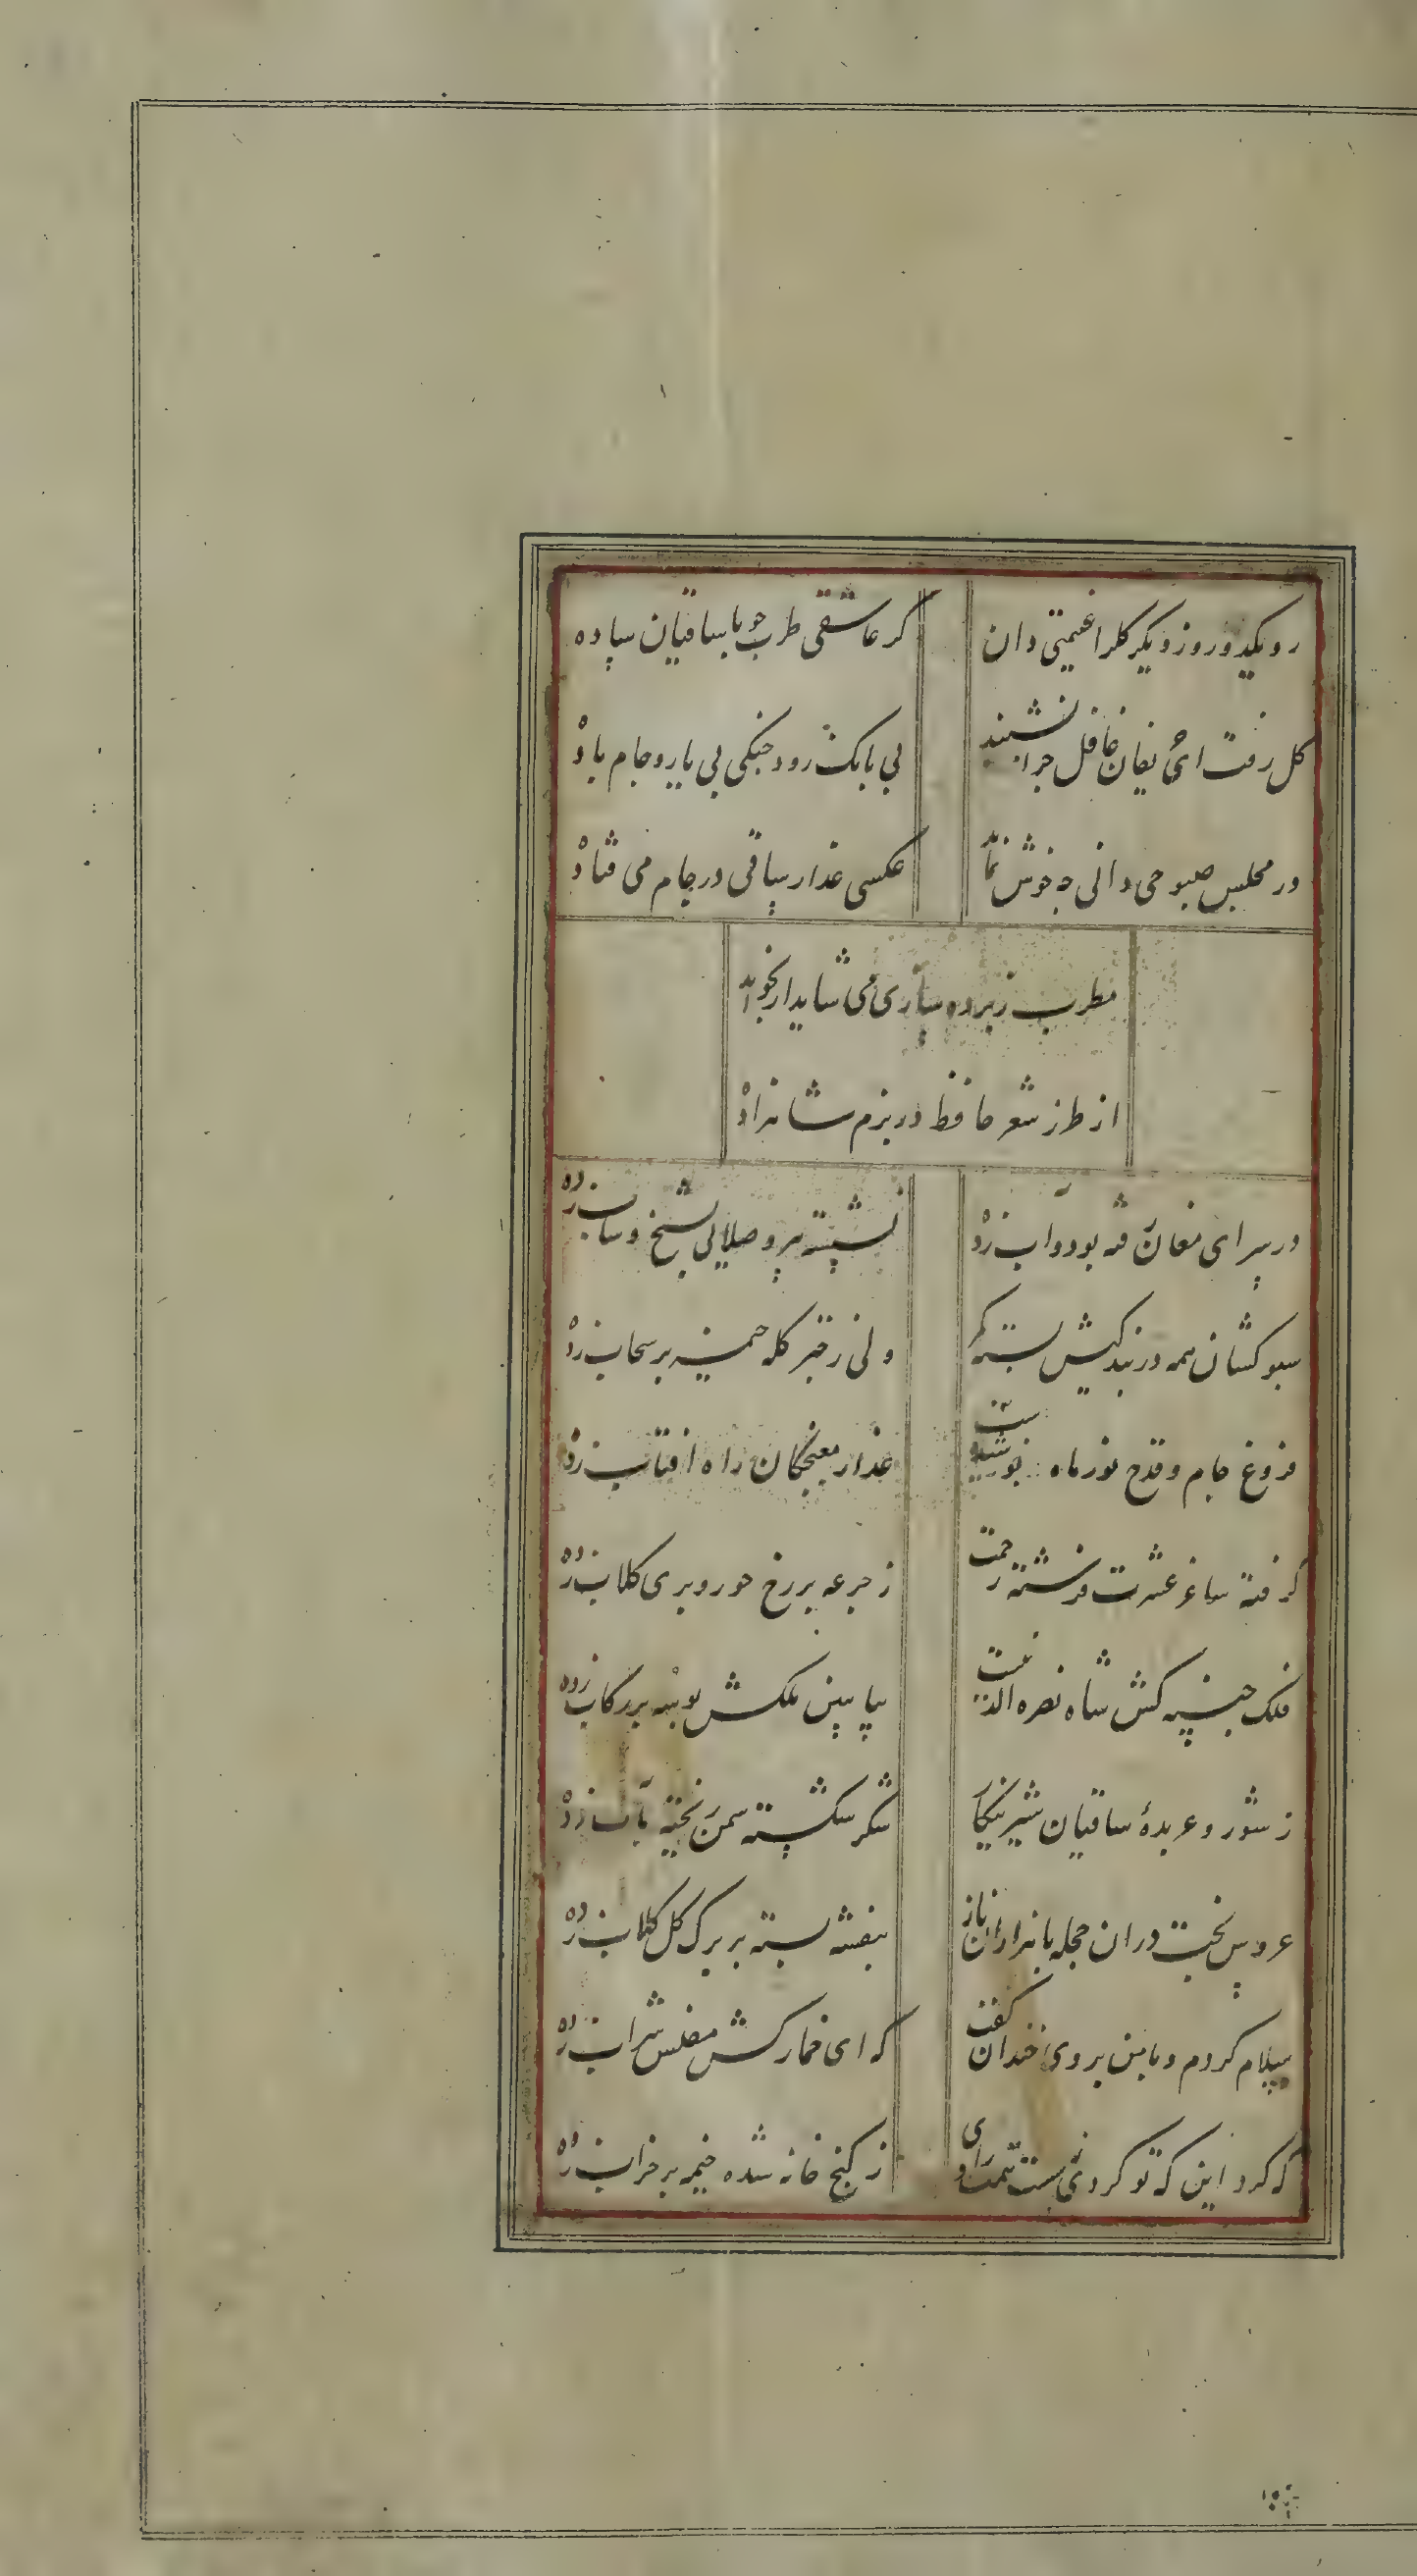 رو یکد و روز دیکر کلرا غنیمتی دان کر عاشقی طرب جو با ساقیان ساده
کل رفت ای حریفان غافل چرا نشینید بی بانک رود جنکی بی یار و جام باده
در مجلس صبوحی دانی چه خوش نماید عکسی عذار ساقی در جام می فتاده
مطرب ز پرده سازی می شاید ار بخواند
از طرز شعر حافظ در بزم شاهزاده
در سرای مغان رفته بود و آب زده نشسته پیر و صلایی بشیخ و شاب زده
سبو کشان همه در بندکیش بسته کمر ولی ز قبر کله خیمه بر سحاب زده
فروغ جام و قدح نور ماه پوشیده عذار مغبچکان راه افتاب زده
کرفته ساغر عشرت فرشته رحمت ز جرعه بر رخ حور و پری کلاب زده
فلک جنیبه کش شاه نصرة الدین بیا ببین ملکش بوسه بر رکاب زده
ز شور و عربدهٔ ساقیان شیرینکار شکر شکسته سمن ریخته رباب زده
عروس بخت دران حجله با هزاران ناز بنفشه بسته بر برک کل کلاب زده
سلام کردم و با من بروی خندان کفت که ای خمارکش مفلس شراب زده
که کرد این که تو کردی بسست همت و رای ز کنج خانه شده خیمه بر خراب زده